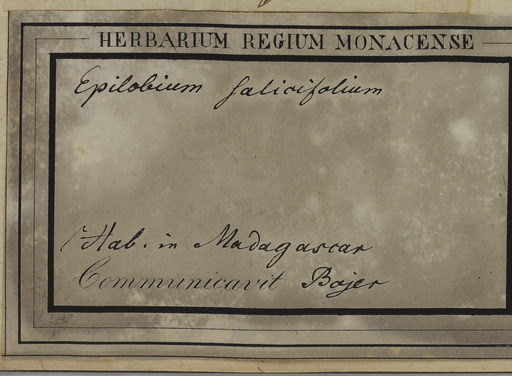 HERBARIUM REGIUM MONACENSE
Epilobium salicifolium
Hab. in Madagascar
Communicavit Bojer